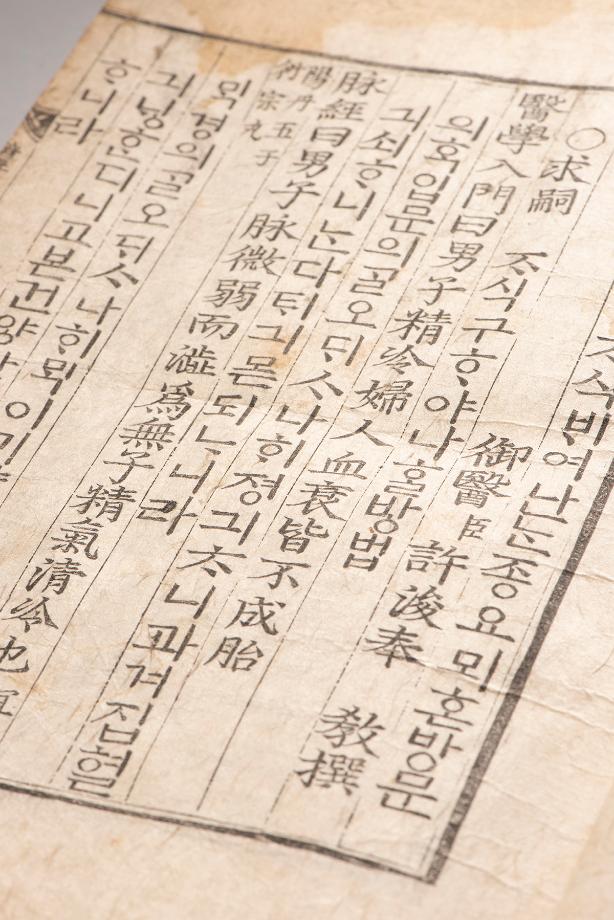 ᄌᆞ식ᄇᆡ여난ᄂᆞᆫ죵요뫼혼방문
御醫臣許浚奉 敎撰
○求嗣 ᄌᆞ식구ᄒᆞ야나ᄒᆞᆯ방법
醫學入門曰男子精冷婦人血衰皆不成胎
의ᄒᆞᆨ입문의ᄀᆞᆯ오ᄃᆡᄉᆞ나ᄒᆡ졍긔ᄎᆞ니과겨집혈
긔쇠ᄒᆞ니ᄂᆞᆫ다ᄐᆡ긔몯되ᄂᆞ니라
脉經曰男子脉微弱而澁爲無子精氣清冷也宜
陽丹五子
衍宗丸
ᄆᆡᆨ경의ᄀᆞᆯ오ᄃᆡᄉᆞ나ᄒᆡᄆᆡᆨ이미약
긔닝ᄒᆞᆫ디니고본건양
ᄒᆞ니라